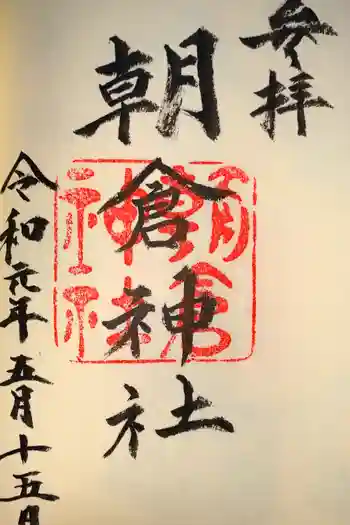 参拝
朝倉神社
朝倉神社
令和元年五月十五日